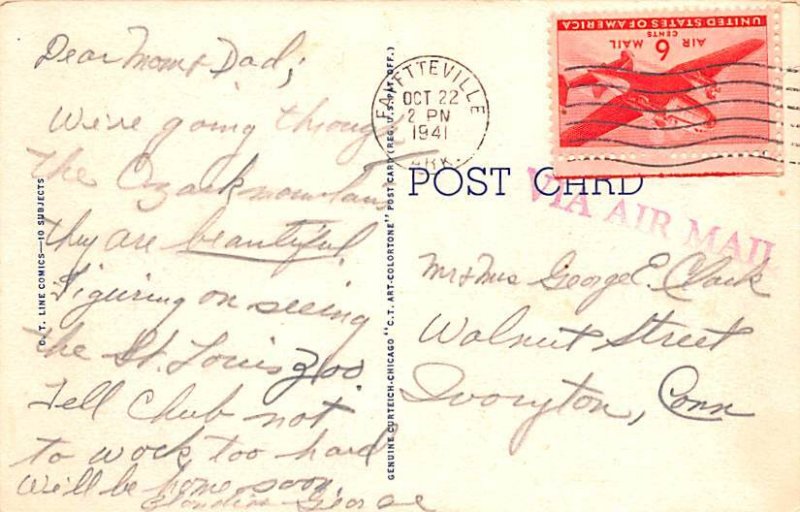 Dear Mom & Dad,
We're going through
the Ozark mountains
they are beautiful.
Figuring on seeing
the St. Louis Zoo.
Tell Chub not
to work too hard
We'll be home soon.
George
C. T. LINE COMICS—10 SUBJECTS
GENUINE CURTEICH-CHICAGO "C.T. ART-COLORTONE" POST CARD (REG. U.S. PAT. OFF.)
FAYETTEVILLE
OCT 22
2 PM
1941
ARK.
UNITED STATES OF AMERICA
AIR MAIL
6 CENTS
POST CARD
VIA AIR MAIL
Mr & Mrs George E. Clark
Walnut Street
Ivoryton, Conn